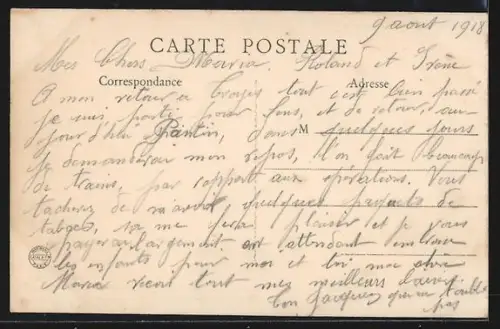 9 aout 1918
CARTE POSTALE
Mes Chers Maria Roland et Irène
Correspondance
Adresse
A mon retour a Troyes tout c'est bien passé
je suis partis pour Sens, et de retour au-
jour d'hui Pantin, dans M quelques jours
je demanderai mon repos, l'on fait beaucoup
de trains, par rapport aux opérations. Vous
tacherz de m'avoir quelques paquets de
tabacs, sa me fera plaisir et je vous
payerai l'argent, en attendant embrasse
les enfants pour moi et toi ma chère
Maria recoit tout mes meilleurs baisers
ton Jacques qui ne t'oublie
pas